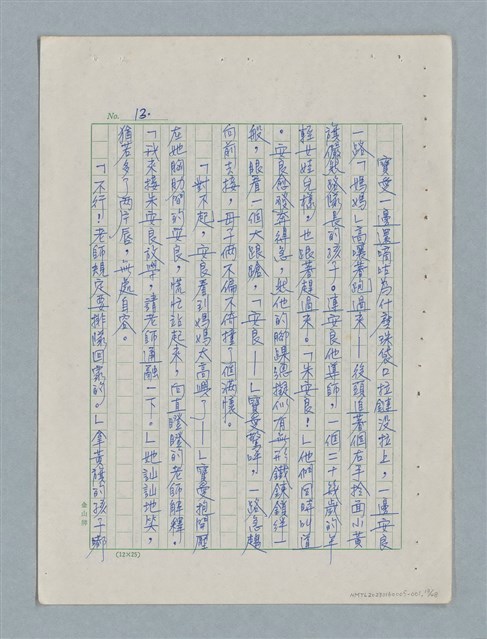 No. 13.
寶愛一邊還嘀咕為什麼珠袋口拉鏈沒拉上，一邊安良
一路「媽媽」高嚷著跑過來——後頭追著個右手拎面小黃
旗儼然路隊長的孩子。連安良他導師，一個二十幾歲的年
輕女娃兒樣，也跟著趕過來。「朱安良！」他們同時叫道
。安良愈發奔得急，起他的腳踝總擬似有無形鐵鍊鎖絆一
般，眼看一個大踉蹌，「安良——」寶愛驚呼，一路急趨
向前去接，母子倆不偏不倚撞了個滿懷。
「對不起，安良看到媽媽太高興了——」寶愛抱開壓
在她胸肋間的安良，慌忙站起來，向直瞪瞪的老師解釋。
「我來接朱安良放學，請老師通融一下。」她訕訕地笑，
猶若多了兩片唇，無處自容。
「不行！老師規定要排隊回家的。」拿黃旗的孩子嘟
金山牌
(12×25)